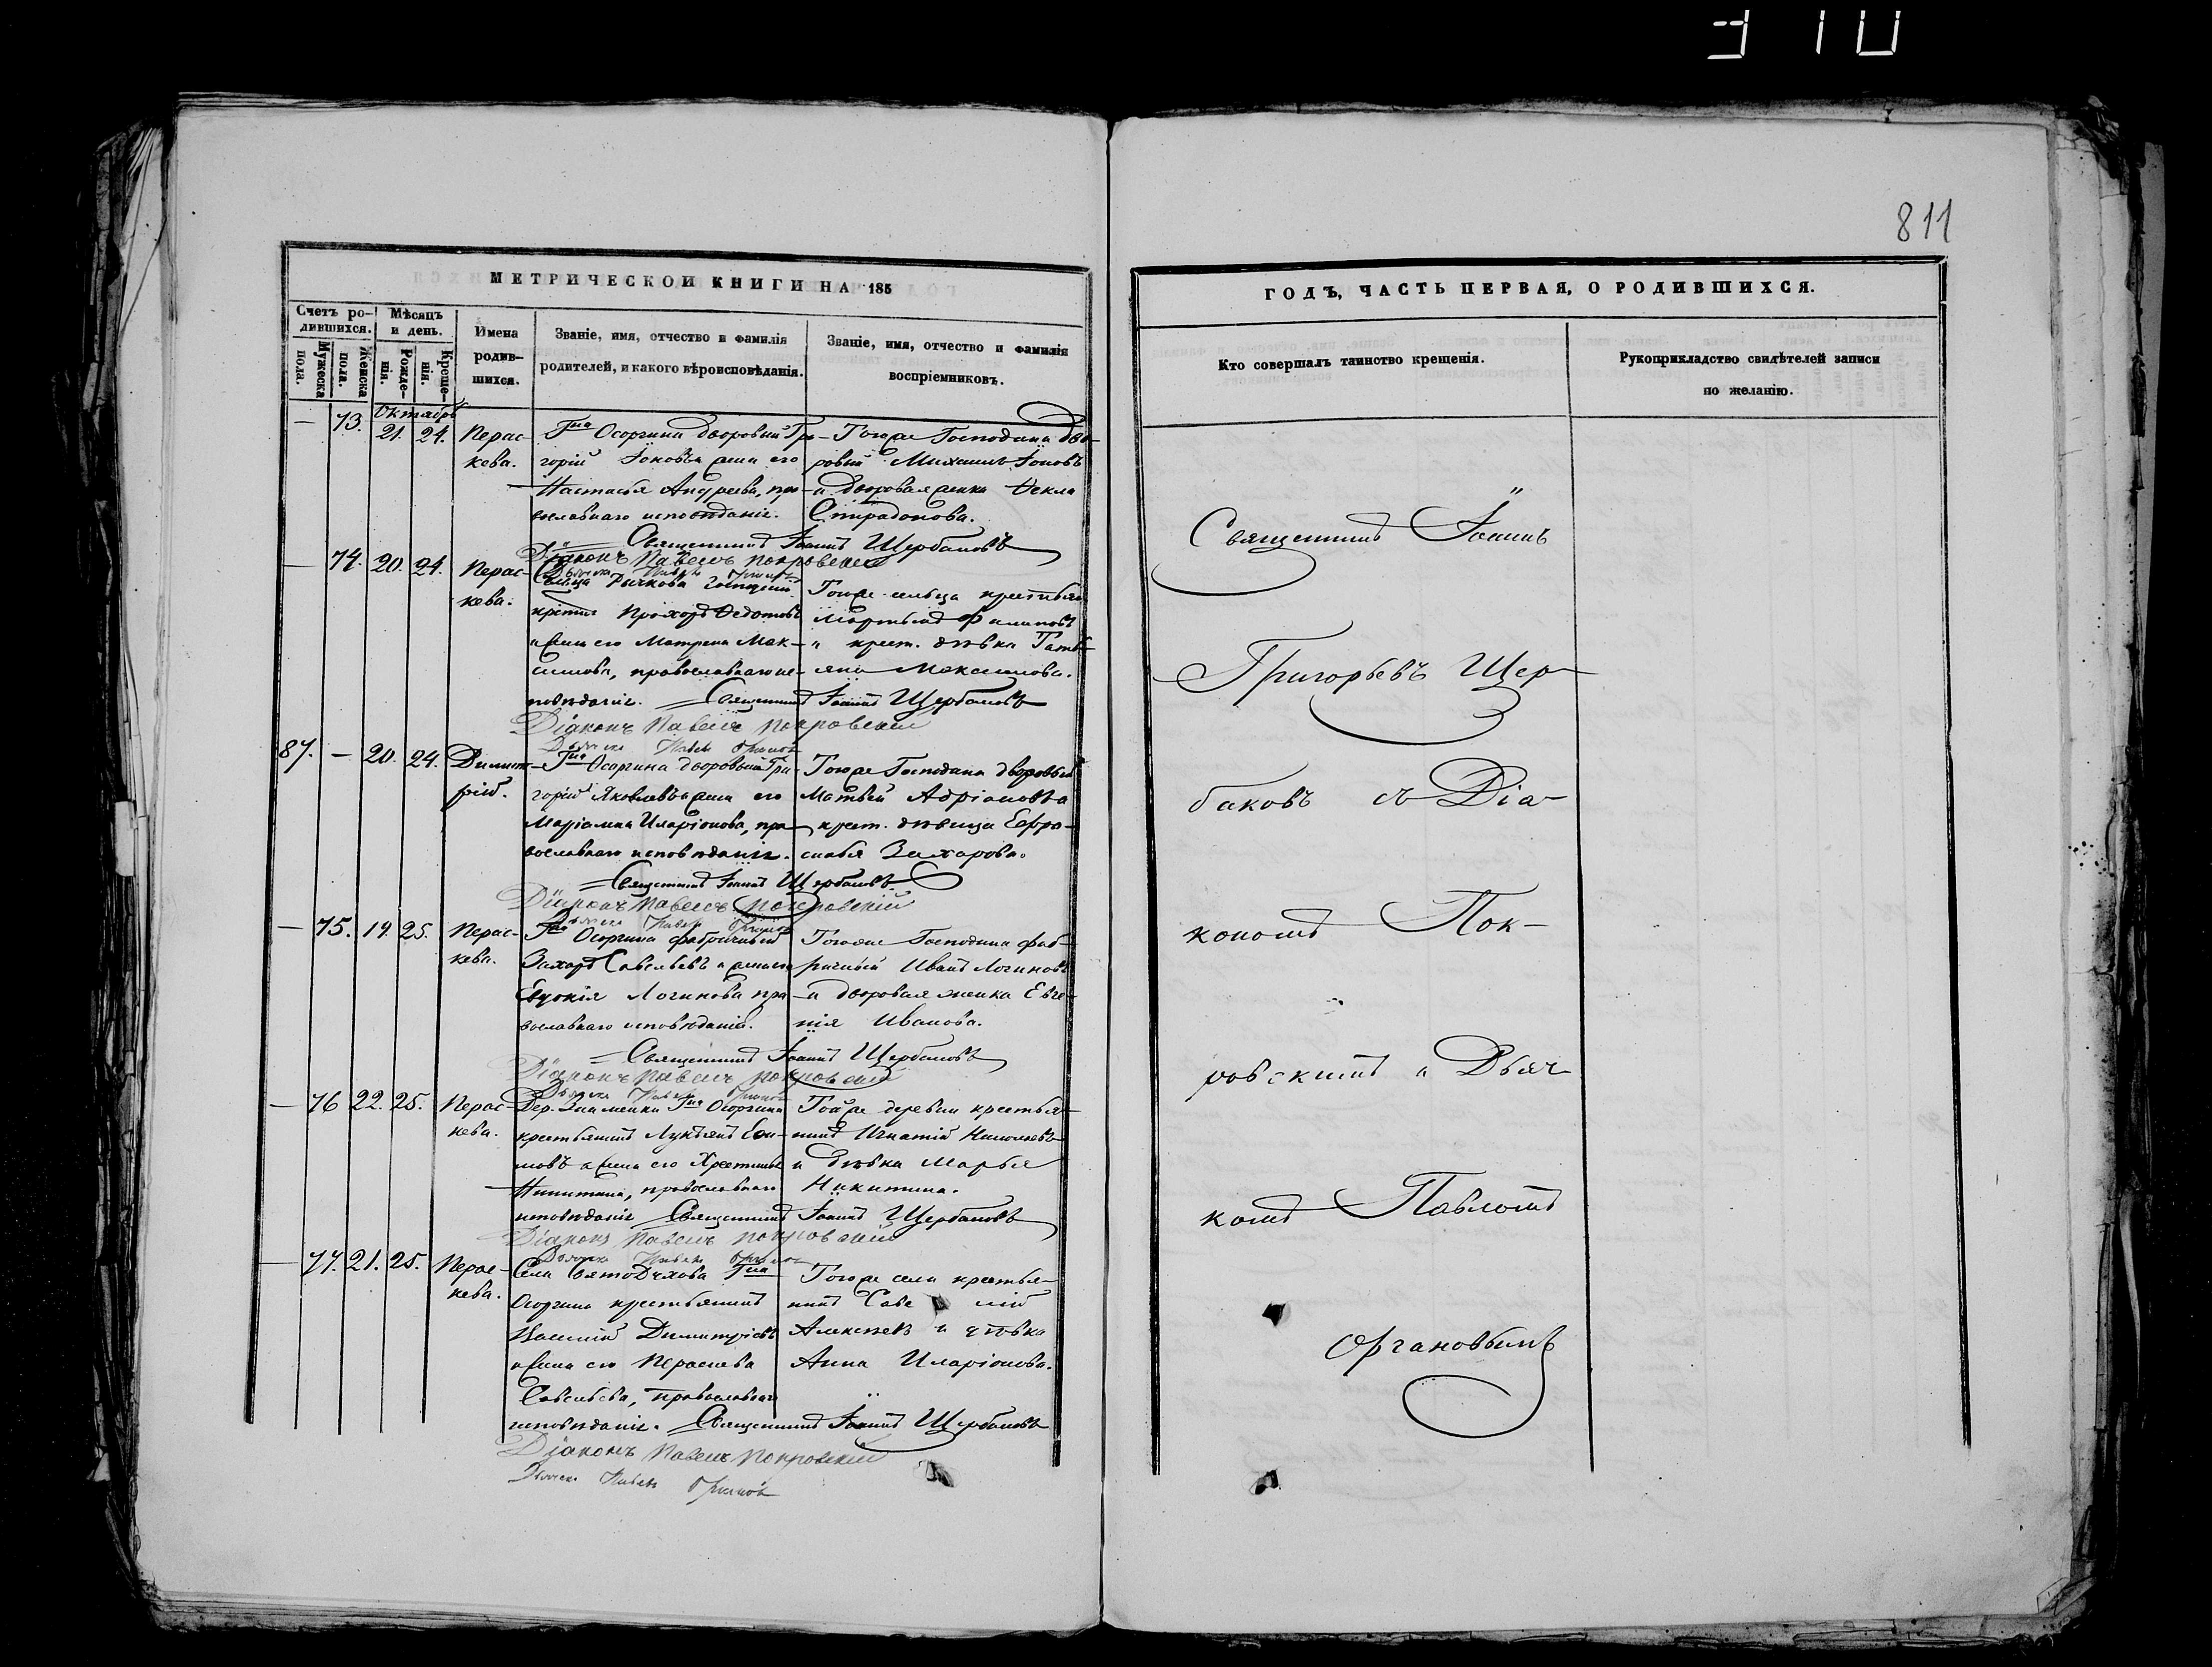 811
МЕТРИЧЕСКОЙ КНИГИ НА 185
Счетъ ро-
дившихся.
Мужеска
пола.
Женска
пола.
Мѣсяцъ
и день.
Рожде-
нія.
Креще-
нія.
Имена
родив-
шихся.
Званіе, имя, отчество и фамилія
родителей, и какого вѣроисповѣданія.
Званіе, имя, отчество и фамилія
воспріемниковъ.
Октябрь
— 73. 21. 24. Перас-
кева.
Гна Осоргина дворовый Гри-
горій Іоковъ и жена его
Настасья Андреева, пра-
вославнаго исповѣданія.
Тогоже Господина дво-
ровый Михаилъ Іоновъ
и дворовая женка Ѳекла
Спиридонова.
Священникъ Іоаннъ Щербаковъ
Діаконъ Павелъ Покровскій
— 74. 20. 24. Перас-
кева.
Сельца Рачкова
крестьян. Прохоръ Ѳедотовъ
и жена его Матрена Мак-
симова, православнаго ис-
повѣданія.
Тогоже сельца крестьян
Филиповъ
и крест. дѣвка Татья-
яна Максимова.
Священникъ Іоаннъ Щербаковъ
Діаконъ Павелъ Покровскій
87. — 20. 24. Димит-
рій.
Гна Осоргина дворовый Гри-
горій Яковлевъ и жена его
Маріамна Иларіонова, пра-
вославнаго исповѣданія.
Тогоже Господина дворовый
Матвей Адріановъ и
крест. дѣвица Ефро-
синья Захарова.
Священникъ Іоаннъ Щербаковъ
Діаконъ Павелъ Покровскій
— 75. 19. 25. Перас-
кева.
Гна Осоргина фабричный
Захаръ Савельевъ и жена его
Евдокія Логинова пра-
вославнаго исповѣданія.
Тогоже Господина фаб-
ричный Иванъ Логиновъ
и дворовая женка Евге-
нія Иванова.
Священникъ Іоаннъ Щербаковъ
Діаконъ Павелъ Покровскій
— 76 22. 25. Перас-
кева.
Дер. Знаменки Гна Осоргина
крестьянинъ Лукьянъ Ефи-
мовъ и жена его Хрестинья
Никитина, православнаго
исповѣданія
Тойже деревни крестья-
нинъ Игнатій Николаевъ
и дѣвка Марья
Никитина.
Священникъ Іоаннъ Щербаковъ
Діаконъ Павелъ Покровскій
— 77. 21. 25. Перас-
кева.
Села СвятоДухова Гна
Осоргина крестьянинъ
Василій Димитріевъ
и жена его Пераскева
Савельева, православнаго
исповѣданія.
Тогоже села крестья-
нинъ Саве лій
Алексѣевъ и дѣвка
Анна Иларіонова.
Священникъ Іоаннъ Щербаковъ
Діаконъ Павелъ Покровскій
ГОДЪ, ЧАСТЬ ПЕРВАЯ, О РОДИВШИХСЯ.
Кто совершалъ таинство крещенія.
Рукоприкладство свидѣтелей записи
по желанію.
Священникъ Іоаннъ
Григорьевъ Щер-
баковъ съ Діа-
кономъ Пок-
ровскимъ и Дьяч-
комъ Павломъ
Органовымъ